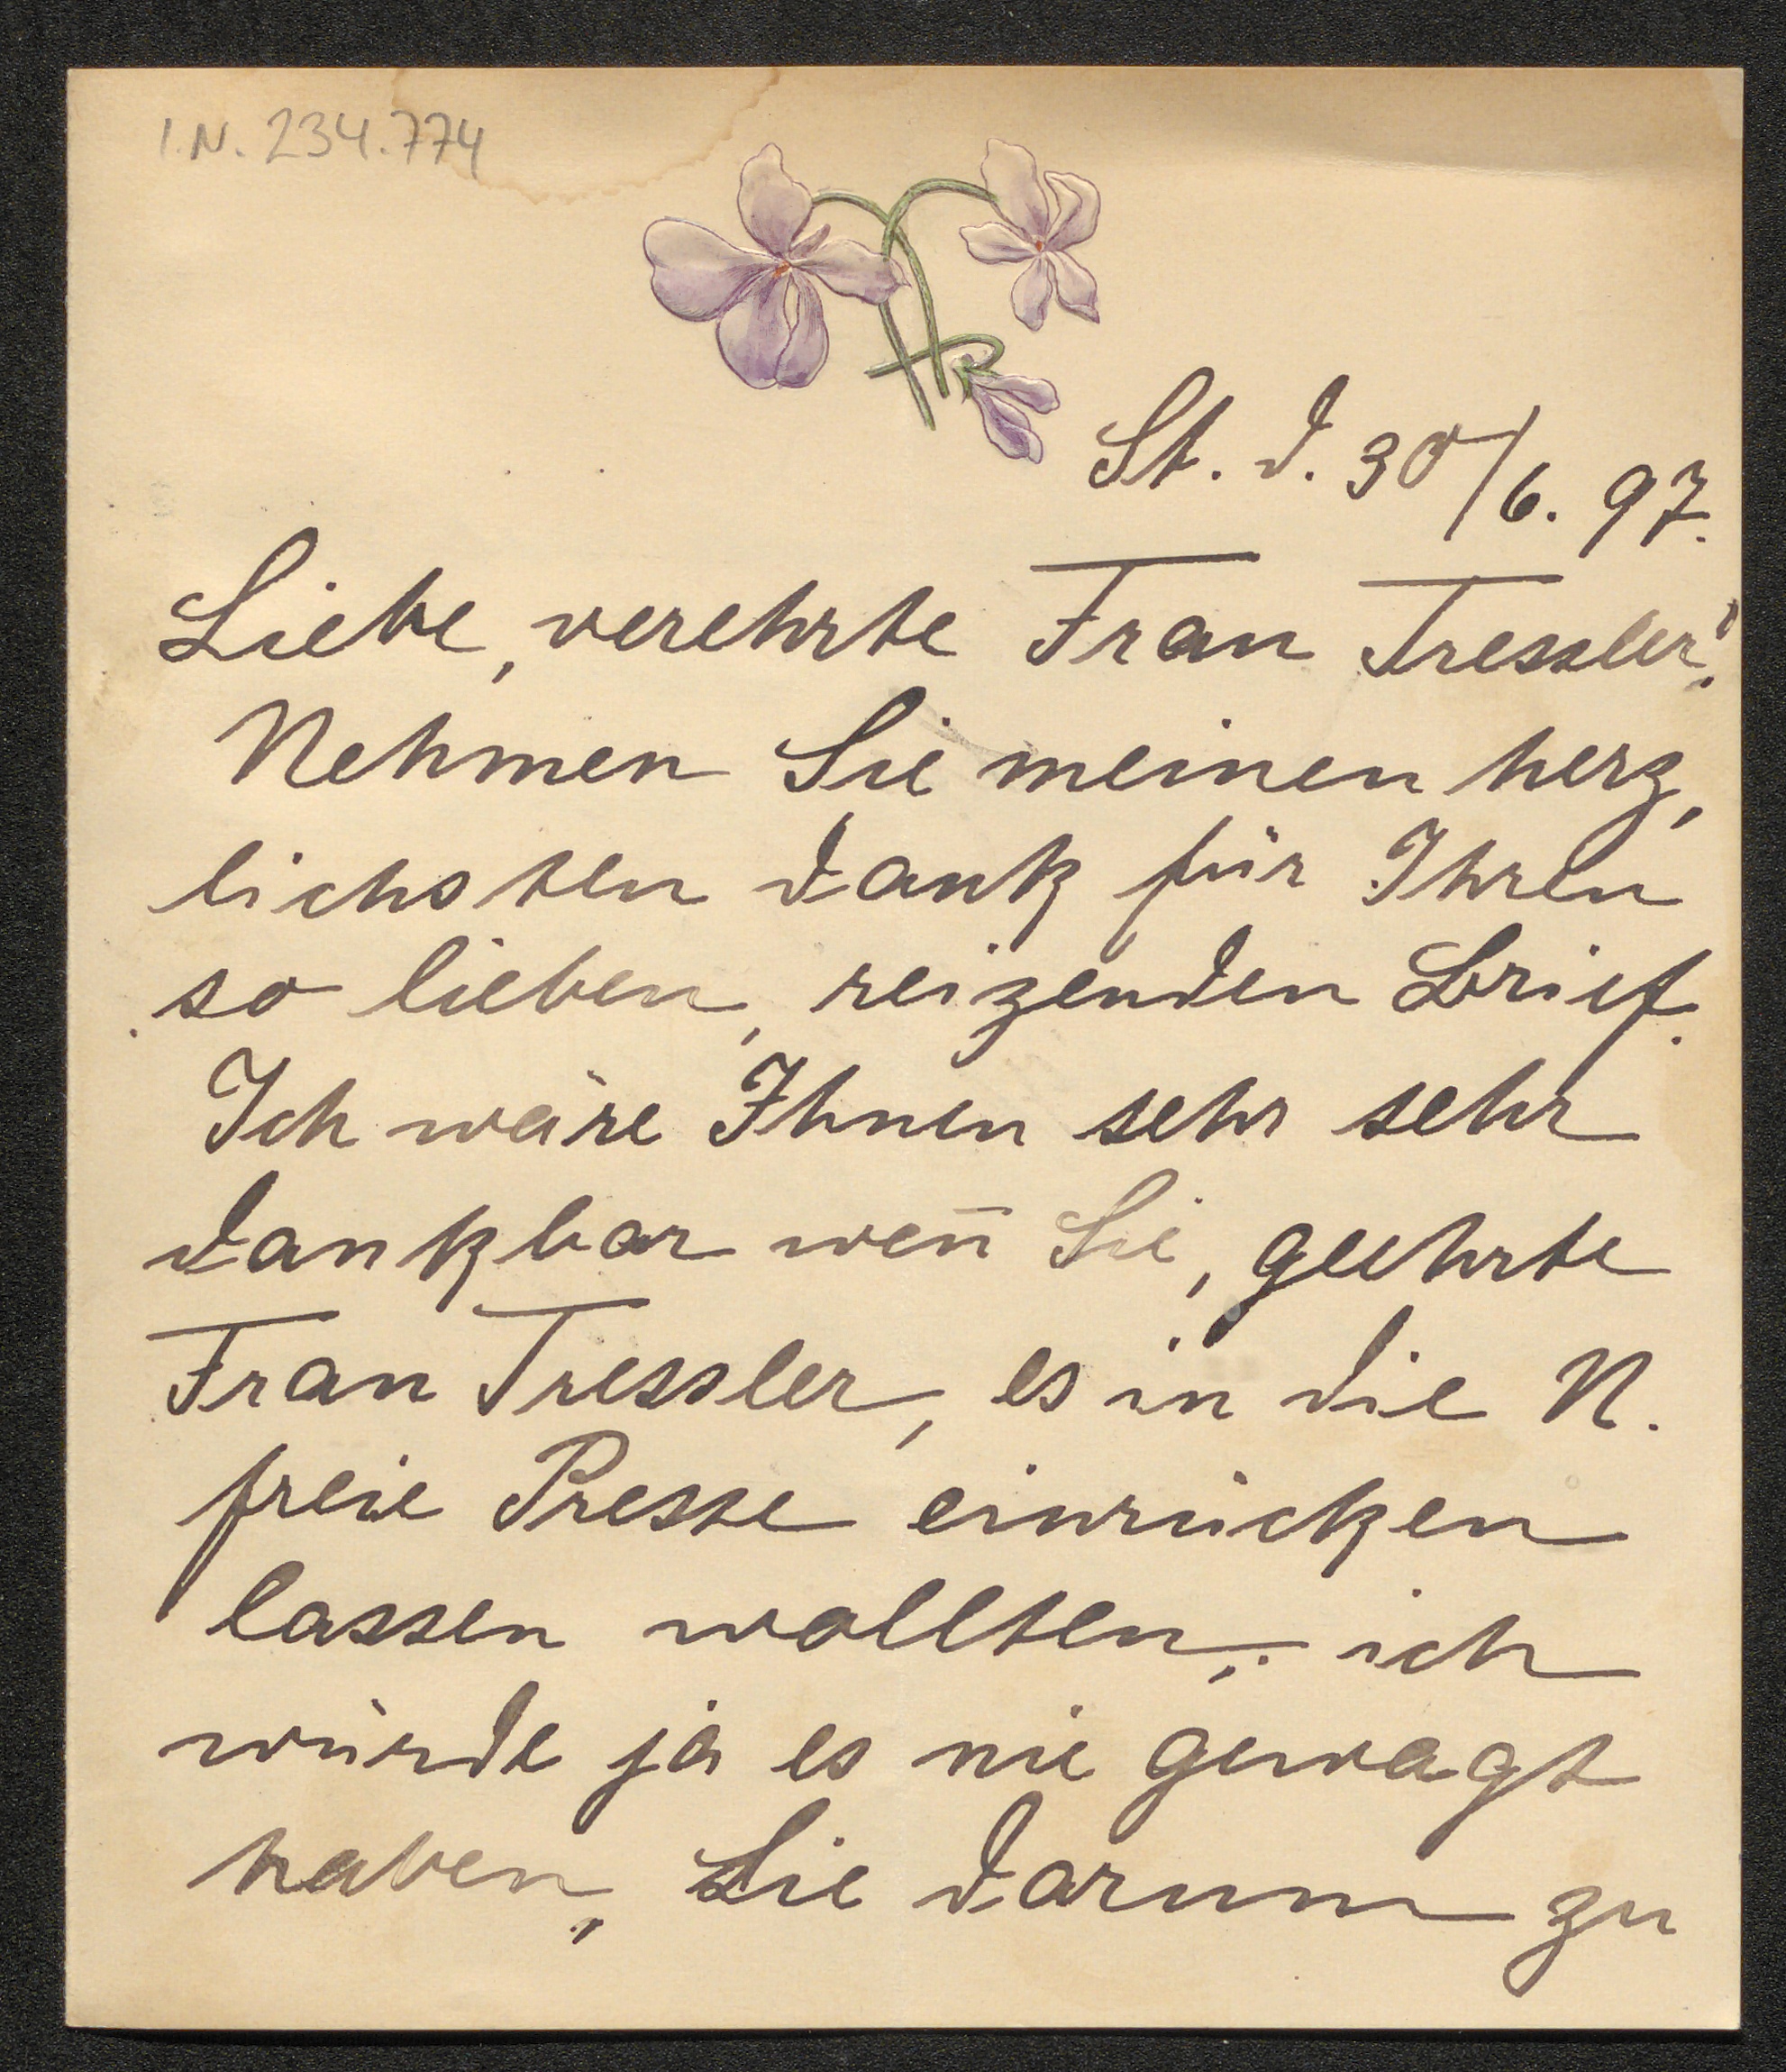 I.N. 234.774
St. d. 30/6. 97.
Liebe, verehrte Frau Tressler!
Nehmen Sie meinen herz,
lichsten Dank für Ihren
so lieben, reizenden Brief.
Ich wäre Ihnen sehr sehr
dankbar weñ Sie, geehrte
Frau Tressler, es in die N.
freie Presse einrücken
lassen wollten; ich
würde ja es nie gewagt
haben, Sie darum zu